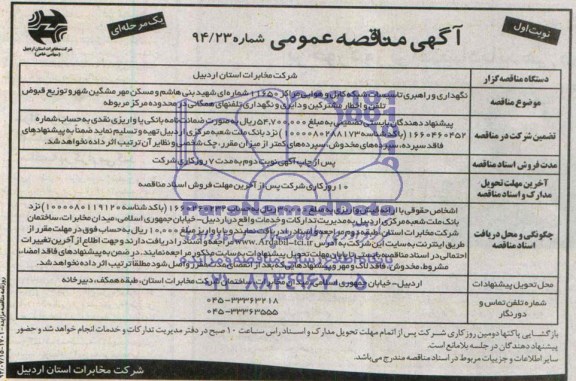 نوبت اول
آگهی مناقصه عمومی شماره ۹۴/۲۳
یک مرحله‌ای
شرکت مخابرات استان اردبیل
(سهامی خاص)
دستگاه مناقصه گزار
شرکت مخابرات استان اردبیل
موضوع مناقصه
نگهداری و راهبری تاسیسات شبکه کابل و هوایی مراکز ۱۱۶۵۰ شماره‌ای شهید بنی هاشم و مسکن مهر مشگین شهر و توزیع قبوض
تلفن و اخطار مشترکین و دایری و نگهداری تلفنهای همگانی در محدوده مرکز مربوطه
تضمین شرکت در مناقصه
پیشنهاد دهندگان بایستی تضمینی به مبلغ ۵۴،۷۰۰،۰۰۰ ریال به صورت ضمانت نامه بانکی یا واریزی نقدی به حساب شماره
۱۶۶۰۴۶۰۴۵۲ (با کد شناسه ۱۰۰۰۰۸۰۲۸۸۱۷۳) نزد بانک ملت شعبه مرکزی اردبیل تهیه و تسلیم نماید ضمنا به پیشنهادهای
فاقد سپرده، سپرده‌های مخدوش، سپرده‌های کمتر از میزان مقرر، چک شخصی و نظایر آن ترتیب اثر داده نخواهد شد.
مدت فروش اسناد مناقصه
پس از چاپ آگهی نوبت دوم به مدت ۷ روز کاری شرکت
آخرین مهلت تحویل
مدارک و اسناد مناقصه
۱۰ روز کاری شرکت پس از آخرین مهلت فروش اسناد مناقصه
چگونگی و محل دریافت
اسناد مناقصه
اشخاص حقوقی با ارائه فیش واریزی به مبلغ ریال به حساب (با کد شناسه ۱۰۰۰۰۸۰۱۱۹۱۲۰۰) نزد
بانک ملت شعبه مرکزی اردبیل به مدیریت تدارکات و خدمات واقع در اردبیل- خیابان جمهوری اسلامی، میدان مخابرات، ساختمان
شرکت مخابرات استان طبقه دوم مراجعه و اسناد را دریافت نمایند و یا با واریز مبلغ ۱۰،۰۰۰ ریال به حساب فوق در مهلت مقرر از
طریق اینترنت به سایت این شرکت به آدرس www.Ardabil-tci.ir مراجعه و اسناد را دریافت دارند و جهت اطلاع از آخرین تغییرات
احتمالی در اسناد مناقصه بایستی تا پایان مهلت تحویل پیشنهادات به سایت مذکور مراجعه نمایند. در ضمن به پیشنهادهای فاقد امضاء،
مشروط، مخدوش، فاقد لاک و مهر و پیشنهادهایی که بعد از انقضای مدت مقرر واصل شود مطلقا ترتیب اثر داده نخواهد شد.
محل تحویل پیشنهادات
اردبیل- خیابان جمهوری اسلامی- میدان مخابرات- ساختمان شرکت مخابرات استان، طبقه همکف، دبیرخانه
شماره تلفن تماس و
دورنگار
۰۴۵-۳۳۳۶۳۲۱۸
۰۴۵-۳۳۳۶۳۵۵۵
بازگشایی پاکتها دومین روز کاری شرکت پس از اتمام مهلت تحویل مدارک و اسناد راس ساعت ۱۰ صبح در دفتر مدیریت تدارکات و خدمات انجام خواهد شد و حضور
پیشنهاد دهندگان در جلسه بلامانع است.
سایر اطلاعات و جزییات مربوط در اسناد مناقصه مندرج می‌باشد.
شرکت مخابرات استان اردبیل